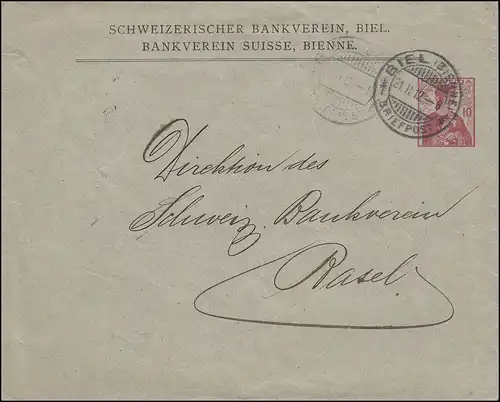 SCHWEIZERISCHER BANKVEREIN, BIEL.
BANKVEREIN SUISSE, BIENNE.
BIEL (BIENNE)
BRIEFPOST
10
Direktion des
Schweiz. Bankverein
Basel